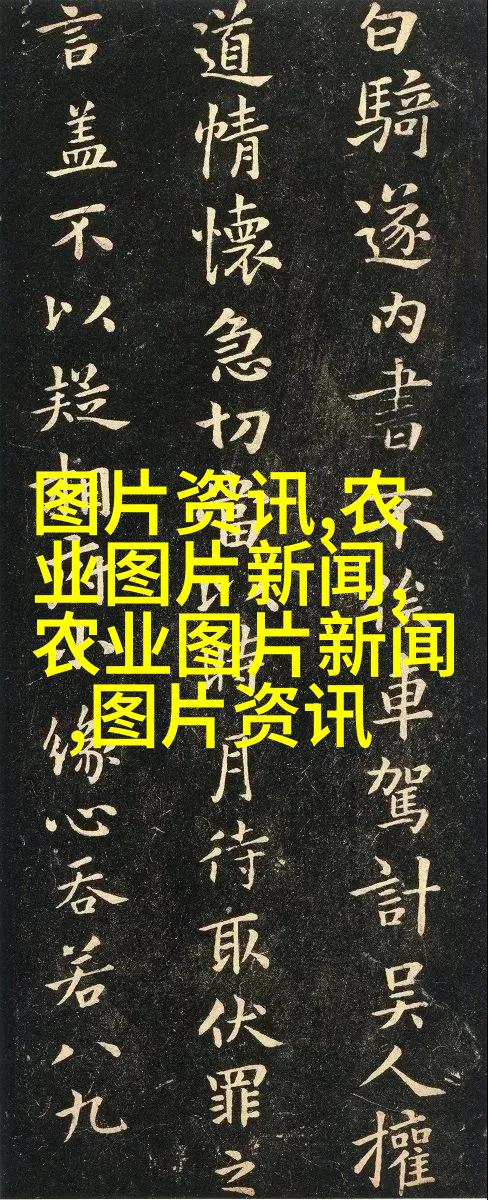 白騎遂内書不俟車駕計吴人權
道情懷急切當月待取伏罪之
言盖不以疑相緣心吞若八九
图片资讯,农
业图片新闻,
农业图片新闻
,图片资讯